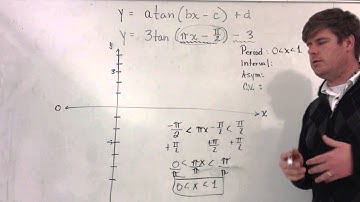 y = a tan (bx - c) + d
y = 3 tan (πx - π/2) - 3
Period : 0 < x < 1
Interval :
Asym :
C.V. :
y
3
0
x
-π/2 < πx - π/2 < π/2
+π/2 +π/2 +π/2
0 < πx < π
π π π
0 < x < 1